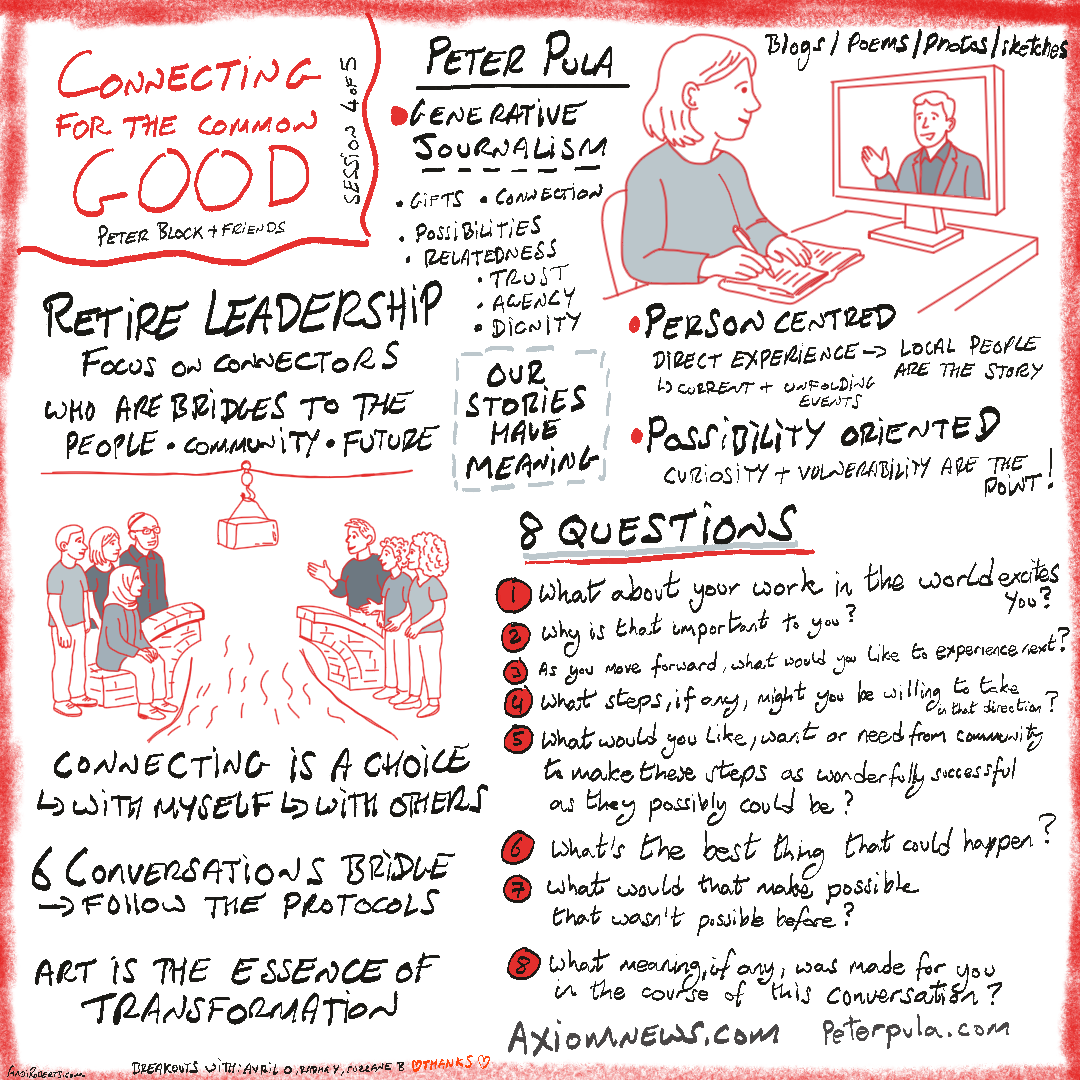 CONNECTING
FOR THE COMMON
GOOD
PETER BLOCK + FRIENDS
SESSION 4 OF 5
PETER PULA
GENERATIVE
JOURNALISM
• GIFTS • CONNECTION
• POSSIBILITIES
• RELATEDNESS
• TRUST
• AGENCY
• DIGNITY
OUR
STORIES
HAVE
MEANING
Blogs / Poems / Photos / sketches
• PERSON CENTRED
DIRECT EXPERIENCE → LOCAL PEOPLE
ARE THE STORY
↳ CURRENT + UNFOLDING
EVENTS
• POSSIBILITY ORIENTED
CURIOSITY + VULNERABILITY ARE THE
POINT!
RETIRE LEADERSHIP
FOCUS ON CONNECTORS
WHO ARE BRIDGES TO THE
PEOPLE • COMMUNITY • FUTURE
CONNECTING IS A CHOICE
↳ WITH MYSELF ↳ WITH OTHERS
6 CONVERSATIONS BRIDLE
→ FOLLOW THE PROTOCOLS
ART IS THE ESSENCE OF
TRANSFORMATION
8 QUESTIONS
1 What about your work in the world excites
you?
2 Why is that important to you?
3 As you move forward, what would you like to experience next?
4 What steps, if any, might you be willing to take
in that direction?
5 What would you like, want or need from community
to make these steps as wonderfully successful
as they possibly could be?
6 What's the best thing that could happen?
7 What would that make possible
that wasn't possible before?
8 What meaning, if any, was made for you
in the course of this conversation?
AXIOMNEWS.COM Peterpula.com
ANDIROBERTS.COM
BREAKOUTS WITH: AVRIL O, B ♡THANKS♡